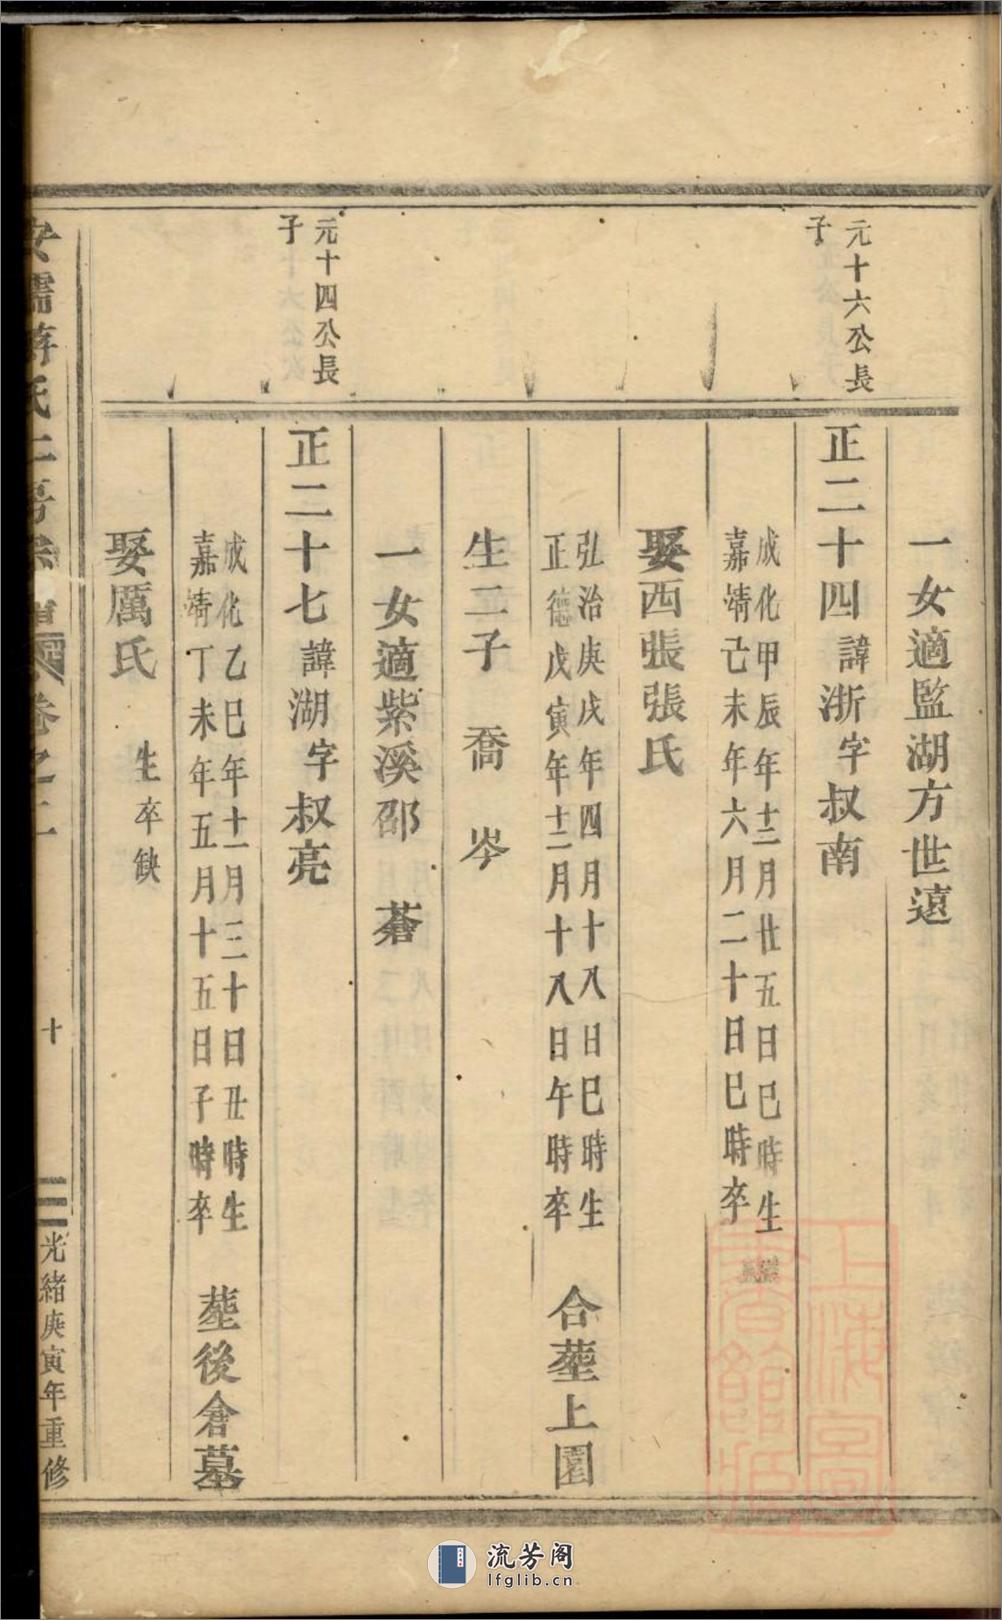 一女適監湖方世遠
元十六公長
子
正二十四諱浙字叔南
成化甲辰年十二月廿五日巳時生
嘉靖己未年六月二十日巳時卒
娶西張張氏
弘治庚戌年四月十八日巳時生
正德戊寅年十二月十八日午時卒
合塟上園
生二子 喬 岑
一女適紫溪邵 蒼
元十四公長
子
正二十七諱湖字叔亮
成化乙巳年十一月三十日丑時生
嘉靖丁未年五月十五日子時卒
塟後倉墓
娶厲氏 生卒缺
氏 卷之二
十
光緒庚寅年重修
上海圖書館藏
流芳阁
lfglib.cn